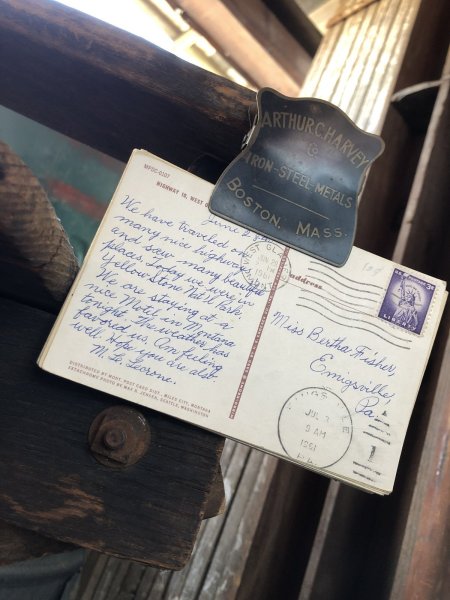 ARTHUR C. HARVEY
Co
IRON-STEEL-METALS
BOSTON, MASS.
MFSC-C107
HIGHWAY 10, WEST
June 2
We have traveled on
many nice highways
and saw many beautiful
places. Today we were in
Yellow Stone Nat'l Park.
We are staying at a
nice Motel in Montana
tonight. The weather has
favored us. Am feeling
well. hope you are also
DISTRIBUTED BY MONT. POST CARD DIST. - MILES CITY, MONTANA
EKTACHROME PHOTO BY MAX R. JENSEN, SEATTLE, WASHINGTON
JUN 
1961
address
U.S. POSTAGE 3¢
LIBERTY
Miss Bertha Fisher,
Emigsville,
Pa.
JUL 3
9 AM
1961
PA.
1